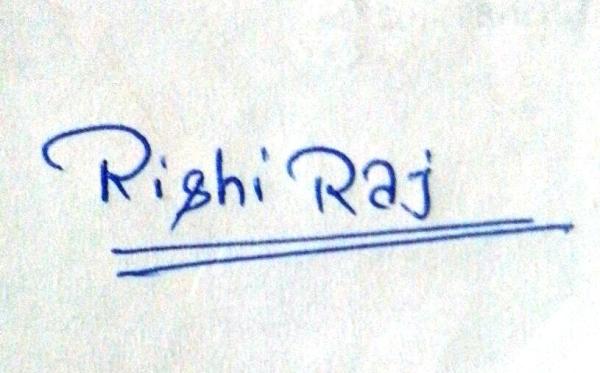 Rishi Raj